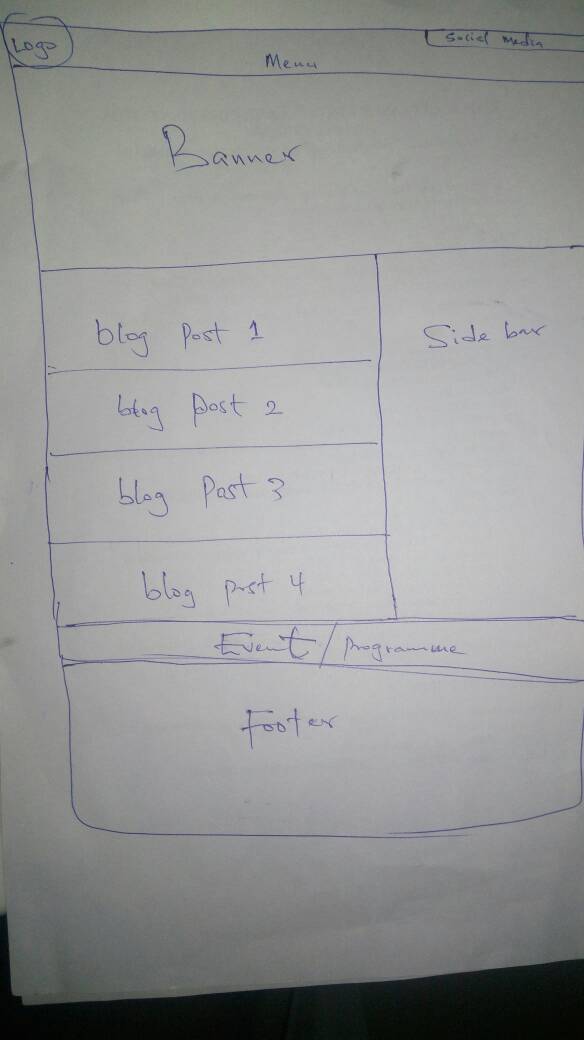 Logo
Social media
Menu
Banner
blog post 1
Side bar
blog post 2
blog Post 3
blog post 4
Event / programme
Footer